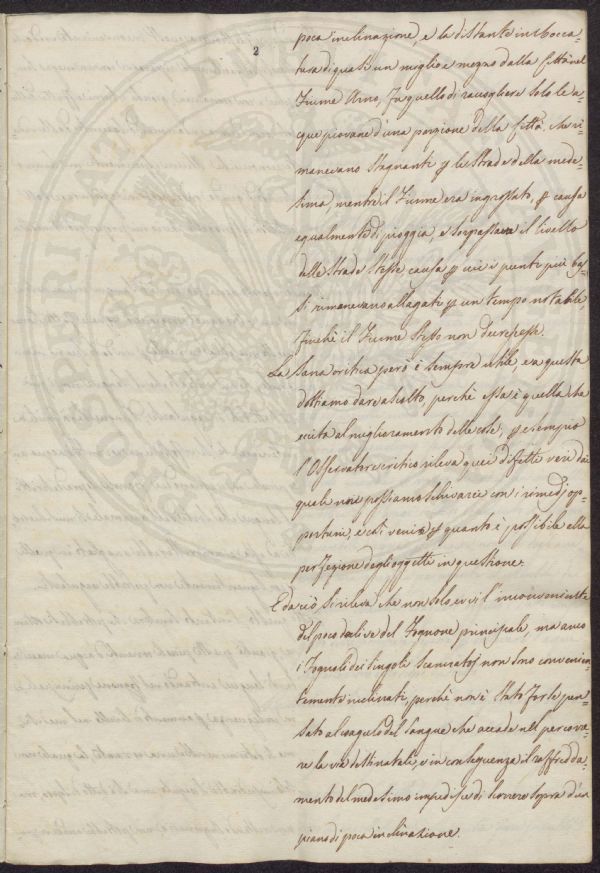 2
poca inclinazione, e la distante imbocca-
tura di quasi un miglio e mezzo dalla Città nel
Fiume Arno, fu quello di raccogliere solo le a-
cque piovane d'una porzione della Città, che ri-
manevano stagnanti p le strade della mede-
sima, mentre il Fiume era ingrossato, p causa
egualmente di pioggia, e sorpassava il livello
delle strade stesse, causa p cui i punti più bas-
si rimanevano allagati p un tempo notabile,
finchè il Fiume stesso non decrescesse.
La sana critica però è sempre utile, e a questa
dobbiamo dare ascolto, perchè essa è quella che
eccita al miglioramento delle cose; p esempio
l'Osservatore critico rileva quei difetti veri dai
quali noi possiamo schivarci con i rimedj op-
portuni, e così venire p quanto è possibile alla
perfezione degli oggetti in questione.
E da ciò, si rileva che non solo, evvi l'inconveniente
del poco declive del Fognone principale, ma anco
i Fognoli dei singoli scannatoj non sono convenien-
temente inclinati, perchè non è stato forse pen-
sato al coagulo del sangue che accade nel percorre-
re la via destinatale, e in conseguenza il raffredda-
mento del medesimo impedisce di scorrere sopra d'un
piano di poca inclinazione.